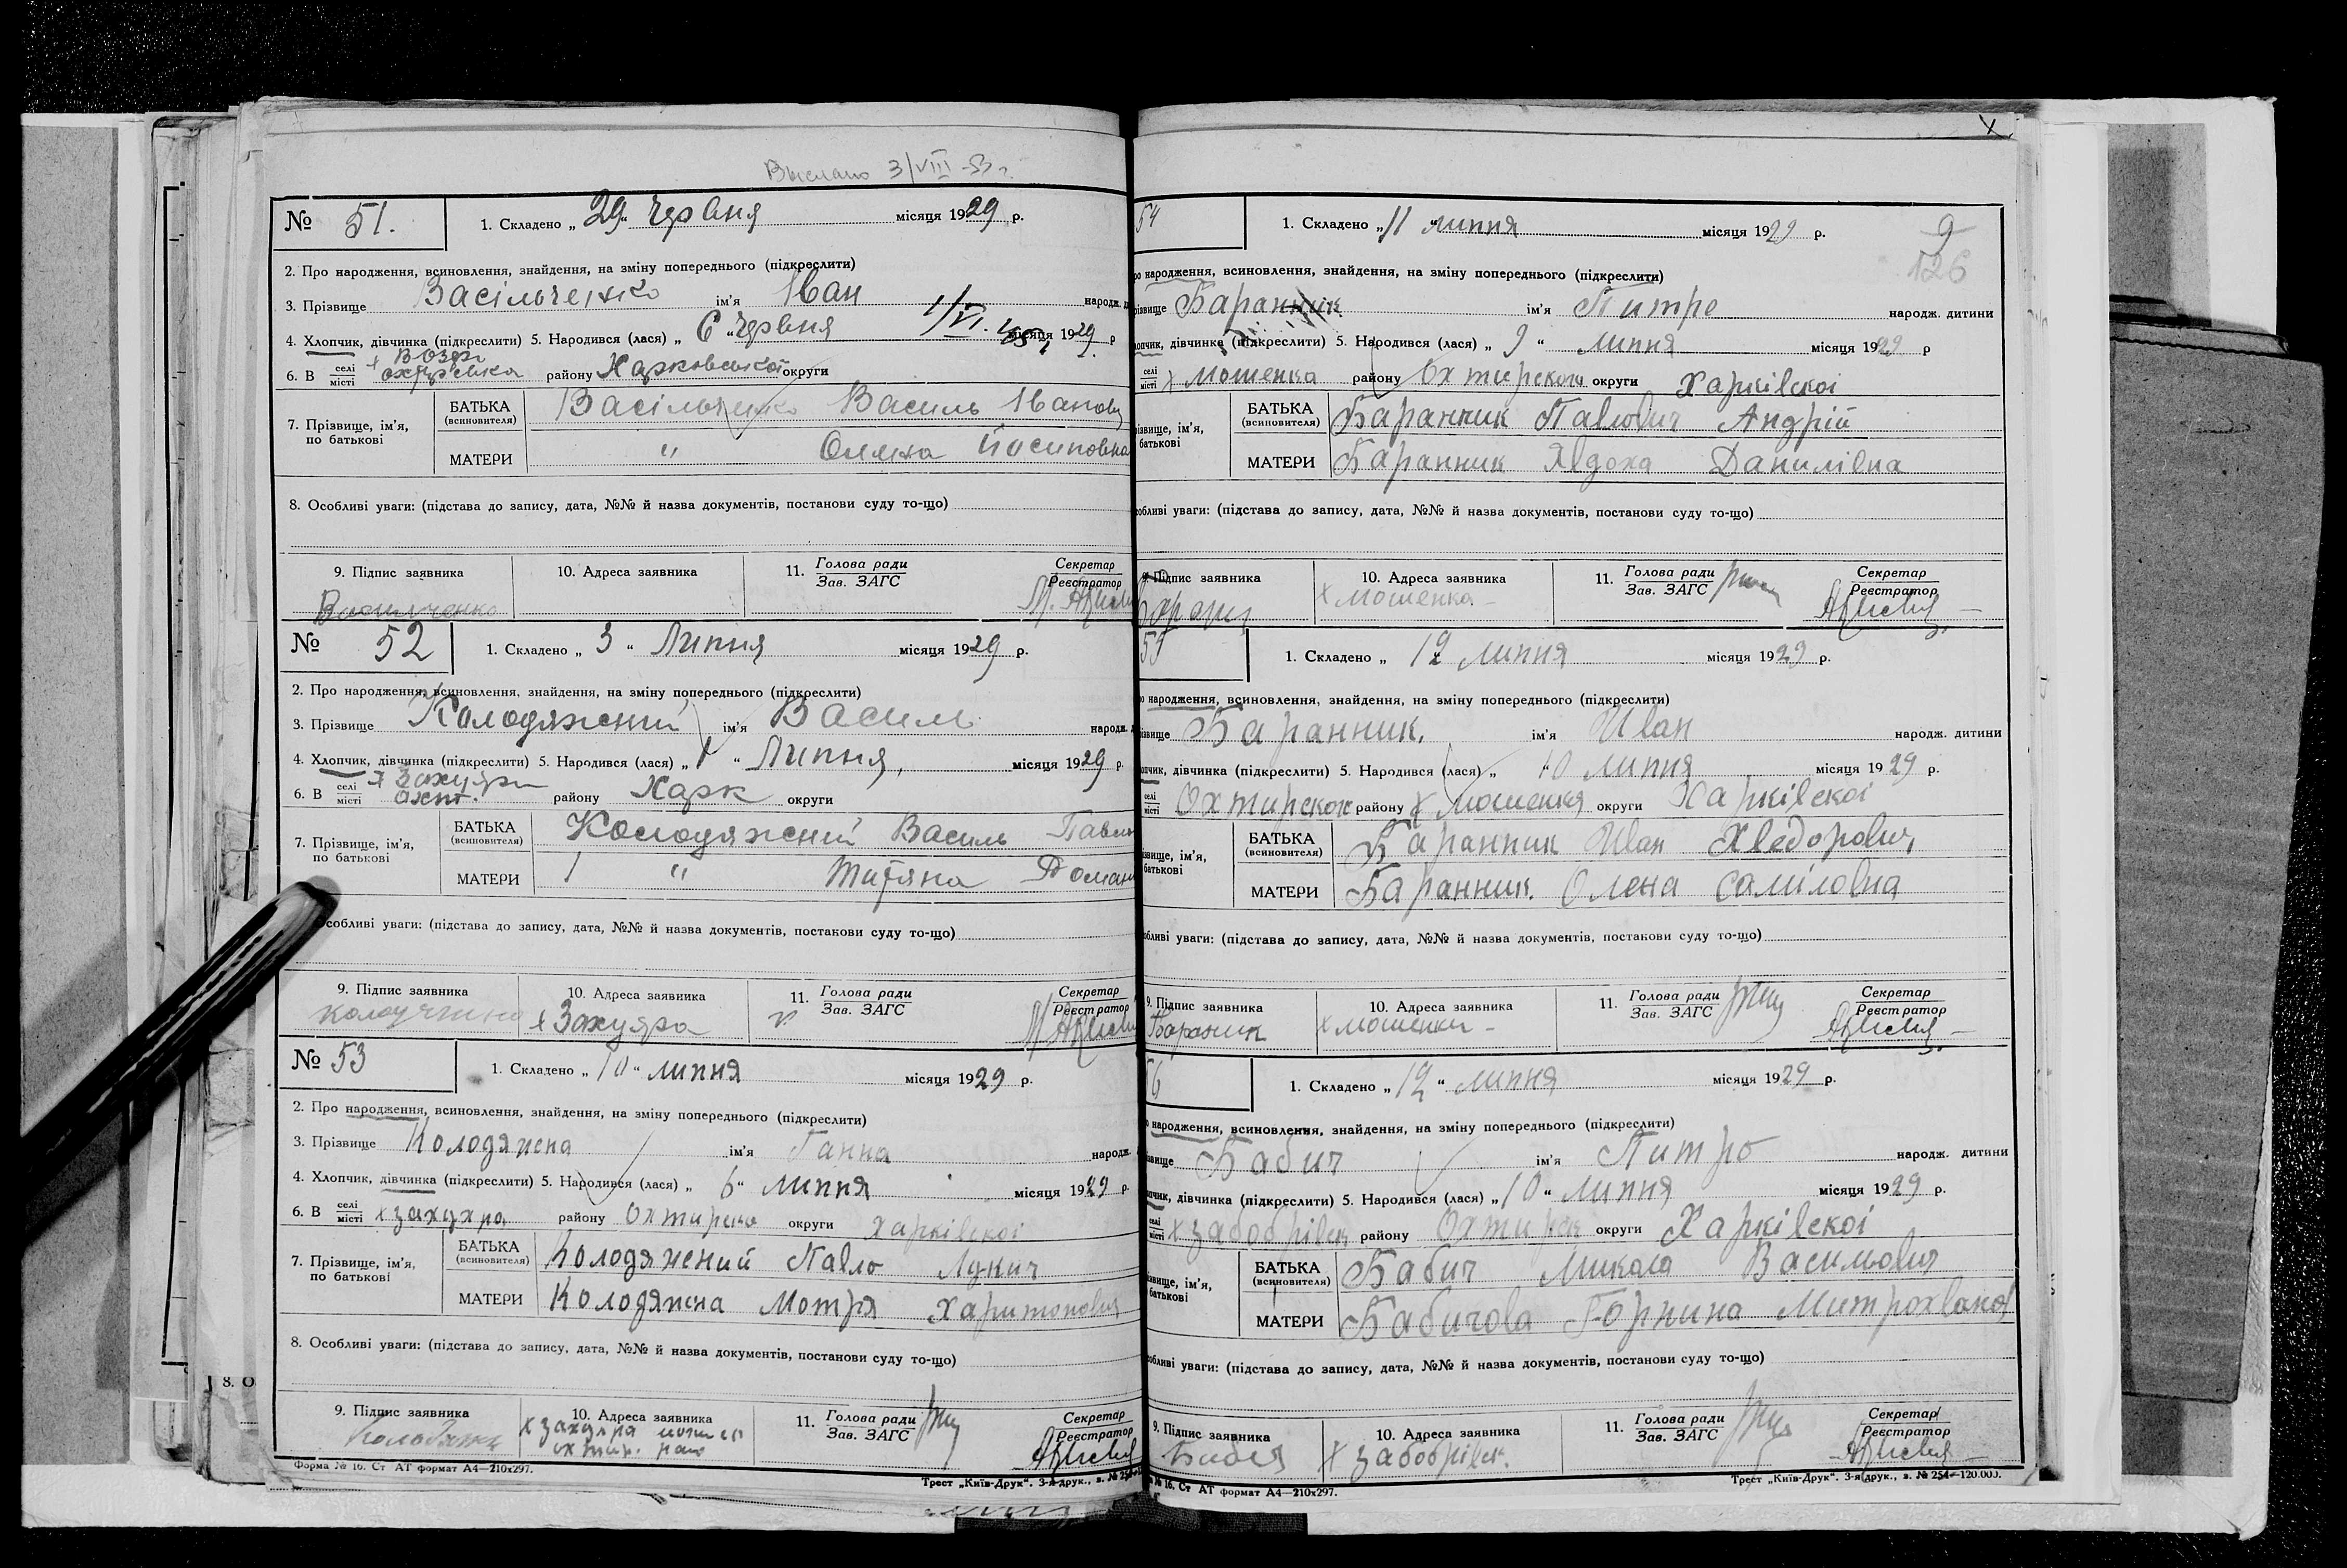 Выслано 3/VIII-53 г.
№ 51. 1. Складено „ 29 “ Червня місяця 1929 р.
2. Про народження, всиновлення, знайдення, на зміну попереднього (підкреслити)
3. Прізвище Васільченко ім'я Іван народж.
4. Хлопчик, дівчинка (підкреслити) 5. Народився (лася) „ 6 “ Червня 1/VI. місяця 1929 р
6. В селі місті х Охтирська району Харковської округи
7. Прізвище, ім'я, по батькові
БАТЬКА (всиновителя) Васільченко Василь Іванович
МАТЕРИ " Олена Йосиповна
8. Особливі уваги: (підстава до запису, дата, №№ й назва документів, постанови суду то-що)
9. Підпис заявника 10. Адреса заявника 11. Голова ради Зав. ЗАГС Секретар Реєстратор
Васильченко
№ 52 1. Складено „ 3 “ Липня місяця 1929 р.
2. Про народження, всиновлення, знайдення, на зміну попереднього (підкреслити)
3. Прізвище Колодяжний ім'я Василь народж.
4. Хлопчик, дівчинка (підкреслити) 5. Народився (лася) „ 1 “ Липня, місяця 1929 р.
6. В селі місті х Захудра Охт. району Харк округи
7. Прізвище, ім'я, по батькові
БАТЬКА (всиновителя) Колодяжний Василь Павл
МАТЕРИ " Титяна Доман
Особливі уваги: (підстава до запису, дата, №№ й назва документів, постанови суду то-що)
9. Підпис заявника 10. Адреса заявника 11. Голова ради Зав. ЗАГС Секретар Реєстратор
х Захудра
№ 53 1. Складено „ 10 “ липня місяця 1929 р.
2. Про народження, всиновлення, знайдення, на зміну попереднього (підкреслити)
3. Прізвище Колодяжна ім'я Ганна народж.
4. Хлопчик, дівчинка (підкреслити) 5. Народився (лася) „ 6 “ липня місяця 1929 р
6. В селі місті х захудра району Охтирско округи Харківскоі
7. Прізвище, ім'я, по батькові
БАТЬКА (всиновителя) Колодяжний Павло Лукич
МАТЕРИ Колодяжна Мотря Харитоновна
8. Особливі уваги: (підстава до запису, дата, №№ й назва документів, постанови суду то-що)
9. Підпис заявника 10. Адреса заявника 11. Голова ради Зав. ЗАГС Секретар Реєстратор
х захудра
охтир. рано
Форма № 16. Ст АТ формат А4—210х297.
Трест „Київ-Друк“. 3-я друк., з. № 254
8. О
54 1. Складено „ 11 липня місяця 1929 р.
9
126
народження, всиновлення, знайдення, на зміну попереднього (підкреслити)
Баранник ім'я Питро народж. дитини
дівчинка (підкреслити) 5. Народився (лася) „ 9 “ липня місяця 1929 р
селі місті х Мошенка району Охтирского округи Харківскоі
БАТЬКА (всиновителя) Баранник Павлович Андрій
МАТЕРИ Баранник Явдоха Данилівна
уваги: (підстава до запису, дата, №№ й назва документів, постанови суду то-що)
9. Підпис заявника 10. Адреса заявника 11. Голова ради Зав. ЗАГС Секретар Реєстратор
х Мошенка
55 1. Складено „ 12 липня місяця 1929 р.
народження, всиновлення, знайдення, на зміну попереднього (підкреслити)
Баранник. ім'я Иван народж. дитини
дівчинка (підкреслити) 5. Народився (лася) „ 10 липня місяця 1929 р.
селі місті Охтирского району х Мошенкя округи Харківскоі
БАТЬКА (всиновителя) Баранник Иван Хведорович
МАТЕРИ Баранник. Олена Саміловна
уваги: (підстава до запису, дата, №№ й назва документів, постанови суду то-що)
9. Підпис заявника 10. Адреса заявника 11. Голова ради Зав. ЗАГС Секретар Реєстратор
Бараник х мошенки
56 1. Складено „ 12 “ липня місяця 1929 р.
народження, всиновлення, знайдення, на зміну попереднього (підкреслити)
Бабич ім'я Питро народж. дитини
дівчинка (підкреслити) 5. Народився (лася) „ 10 “ липня місяця 1929 р.
селі місті х забобрівск району Охтирск округи Харківскоі
БАТЬКА (всиновителя) Бабич Микола Васильович
МАТЕРИ Бабичова Горпина Митрохвановн
уваги: (підстава до запису, дата, №№ й назва документів, постанови суду то-що)
9. Підпис заявника 10. Адреса заявника 11. Голова ради Зав. ЗАГС Секретар Реєстратор
х забобрівск.
№ 16. Ст АТ формат А4—210х297.
Трест „Київ-Друк“. 3-я друк., з. № 254—120.000.